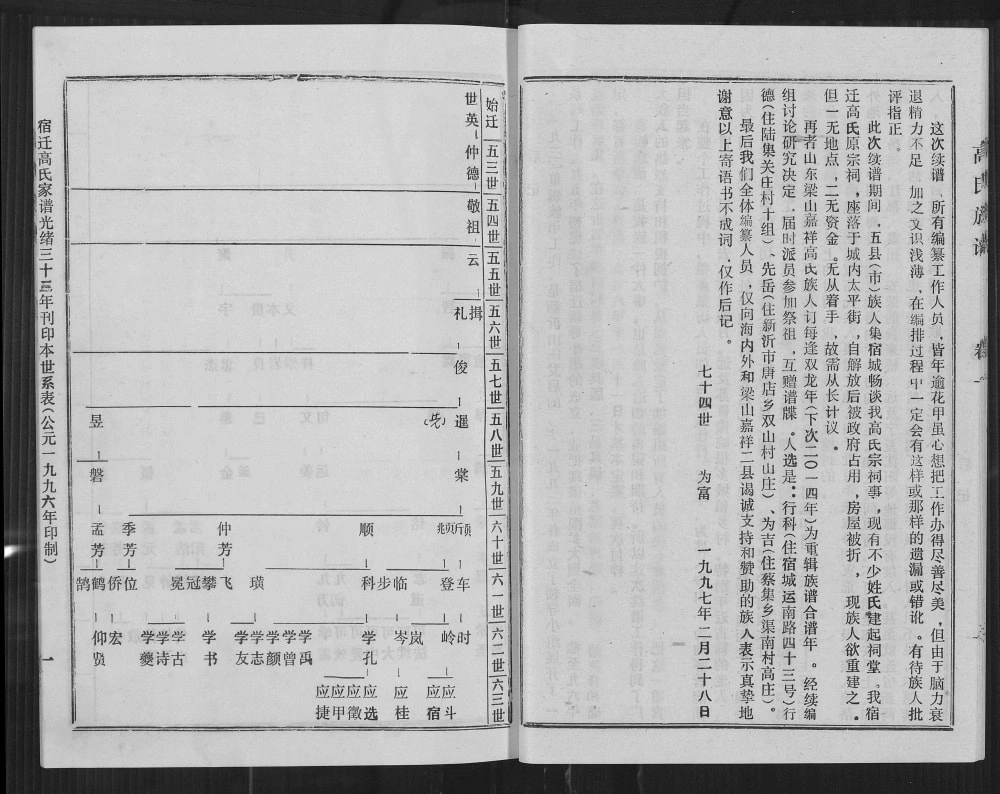 高氏族谱
卷一
这次续谱，所有编纂工作人员，皆年逾花甲虽心想把工作办得尽善尽美，但由于脑力衰
退精力不足，加之文识浅薄，在编排过程中一定会有这样或那样的遗漏或错讹。有待族人批
评指正。
此次续谱期间，五县（市）族人集宿城畅谈我高氏宗祠事，现有不少姓氏建起祠堂。我宿
迁高氏原宗祠，座落于城内太平街，自解放后被政府占用，房屋被折，现族人欲重建之。
但一无地点，二无资金。无从着手，故需从长计议。
再者山东梁山嘉祥高氏族人订每逢双龙年（下次二○一四年）为重辑族谱合谱年。经续编
组讨论研究决定，届时派员参加祭祖，互赠谱牒。人选是：行科（住宿城运南路四十三号）行
德（住陆集关庄村十组）、先岳（住新沂市唐店乡双山村山庄）、为吉（住蔡集乡渠南村高庄）。
最后我们全体编纂人员，仅向海内外和梁山嘉祥二县谒诚支持和赞助的族人表示真挚地
谢意以上寄语书不成词，仅作后记。
七十四世　为富　一九九七年二月二十八日
始迁 五三世 五四世 五五世 五六世 五七世 五八世 五九世 六十世 六一世 六二世 六三世
世英 仲德 敬祖 云
揖 礼
俊
暹 昱
棠 磐
顺 仲芳 季芳 孟芳
车 登 临 步 科 璜 飞 攀 冠 冕 位 侨 鹤 鹄
时 岭 岚 岑 学孔 学禹 学曾 学颜 学志 学友 学书 学古 学诗 学夔 宏 仰贤
应斗 应宿 应桂 应选 应徵 应甲 应捷
宿迁高氏家谱光绪三十三年刊印本世系表（公元一九九六年印制）
一